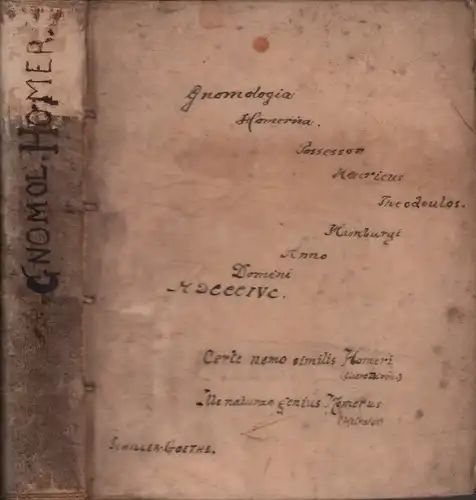 GNOMOL. HOMER.
Gnomologia
Homerica.
Possessor
Henricus
Theodoulos.
Hamburgi
Anno
Domini
MDCCCIVC.
Certe nemo similis Homeri
Ille naturae genius Homerus
SCHILLER-GOETHE.